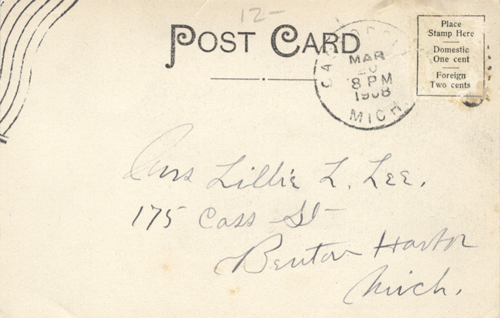 12-
POST CARD
MAR
20
8 PM
1908
MICH.
Place
Stamp Here
Domestic
One cent
Foreign
Two cents
Mrs Lillie L. Lee.
175 Cass St
Benton Harbor
Mich.